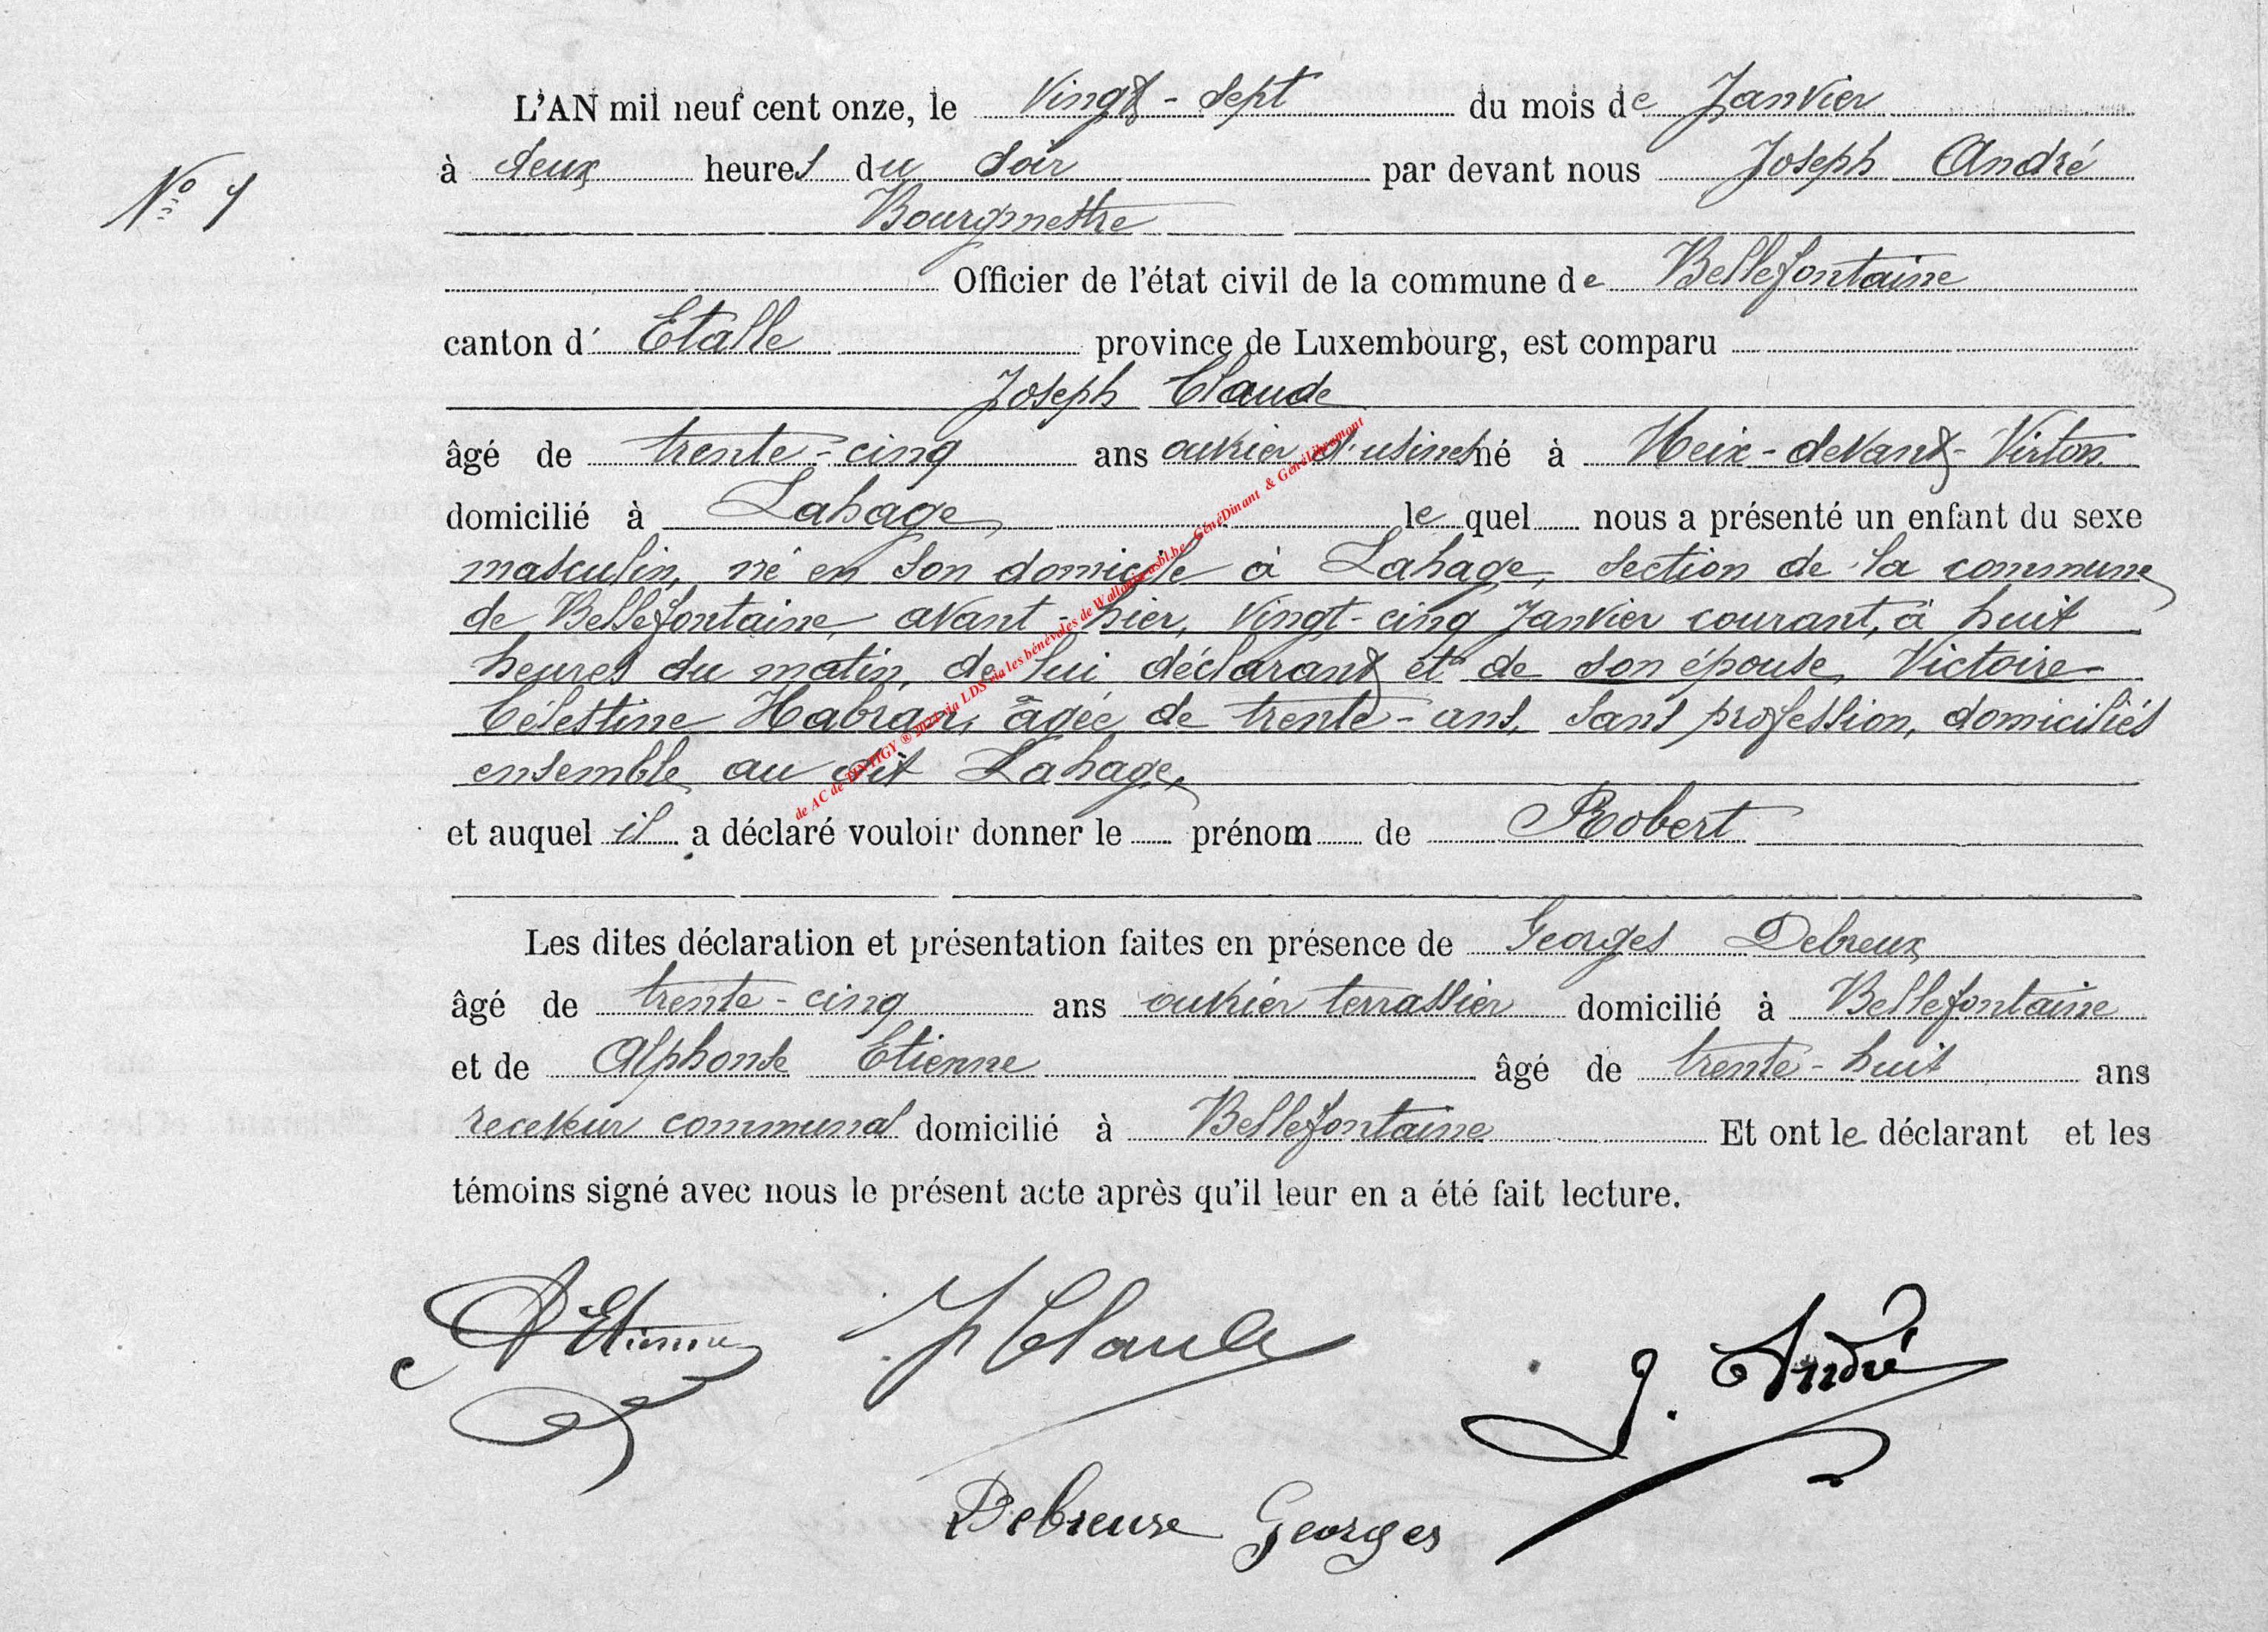 L'AN mil neuf cent onze, le vingt-sept du mois de Janvier
à deux heures du soir par devant nous Joseph André
Nº 4
Bourgmestre
Officier de l'état civil de la commune de Bellefontaine
canton d' Etalle province de Luxembourg, est comparu
Joseph Claude
âgé de trente-cinq ans ouvrier d'usines né à Meix-devant-Virton
domicilié à Lahage le quel nous a présenté un enfant du sexe
masculin, né en son domicile à Lahage, section de la commune
de Bellefontaine, avant-hier, vingt-cinq Janvier courant, à huit
heures du matin, de lui déclarant et de son épouse, Victoire-
Célestine Habran, âgée de trente-ans, sans profession, domiciliés
ensemble au dit Lahage,
de AC de TINTIGY ® 2024 via LDS via les bénévoles de Wallonia asbl.be - GénéDinant & GénéLibramont
et auquel il a déclaré vouloir donner le prénom de Robert
Les dites déclaration et présentation faites en présence de Georges Debreux
âgé de trente-cinq ans ouvrier terrassier domicilié à Bellefontaine
et de Alphonse Etienne âgé de trente-huit ans
receveur communal domicilié à Bellefontaine Et ont le déclarant et les
témoins signé avec nous le présent acte après qu'il leur en a été fait lecture.
A Etienne J Claude J. André
Debreuxe Georges